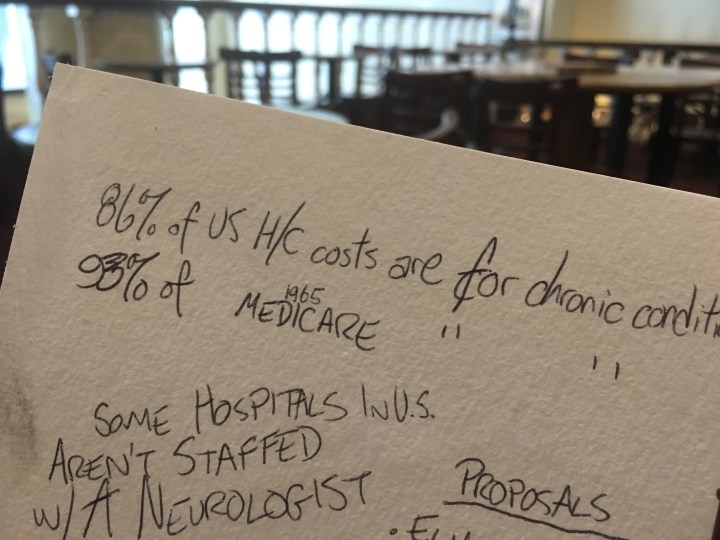 86% of US H/C costs are for chronic
93% of MEDICARE " "
1965
SOME HOSPITALS IN U.S.
AREN'T STAFFED
W/A NEUROLOGIST
PROPOSALS